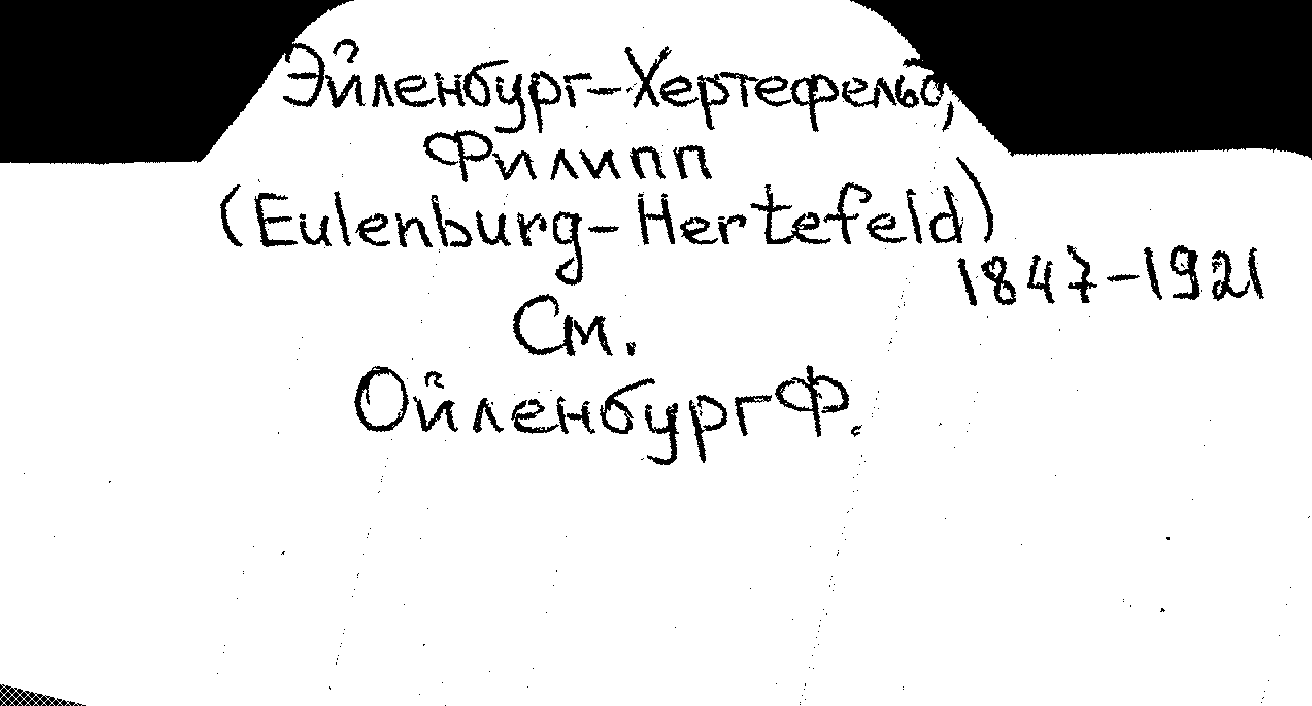 Эйленбург-Хертефельд,
Филипп
(Eulenburg-Hertefeld)
1847-1921
См.
Ойленбург Ф.